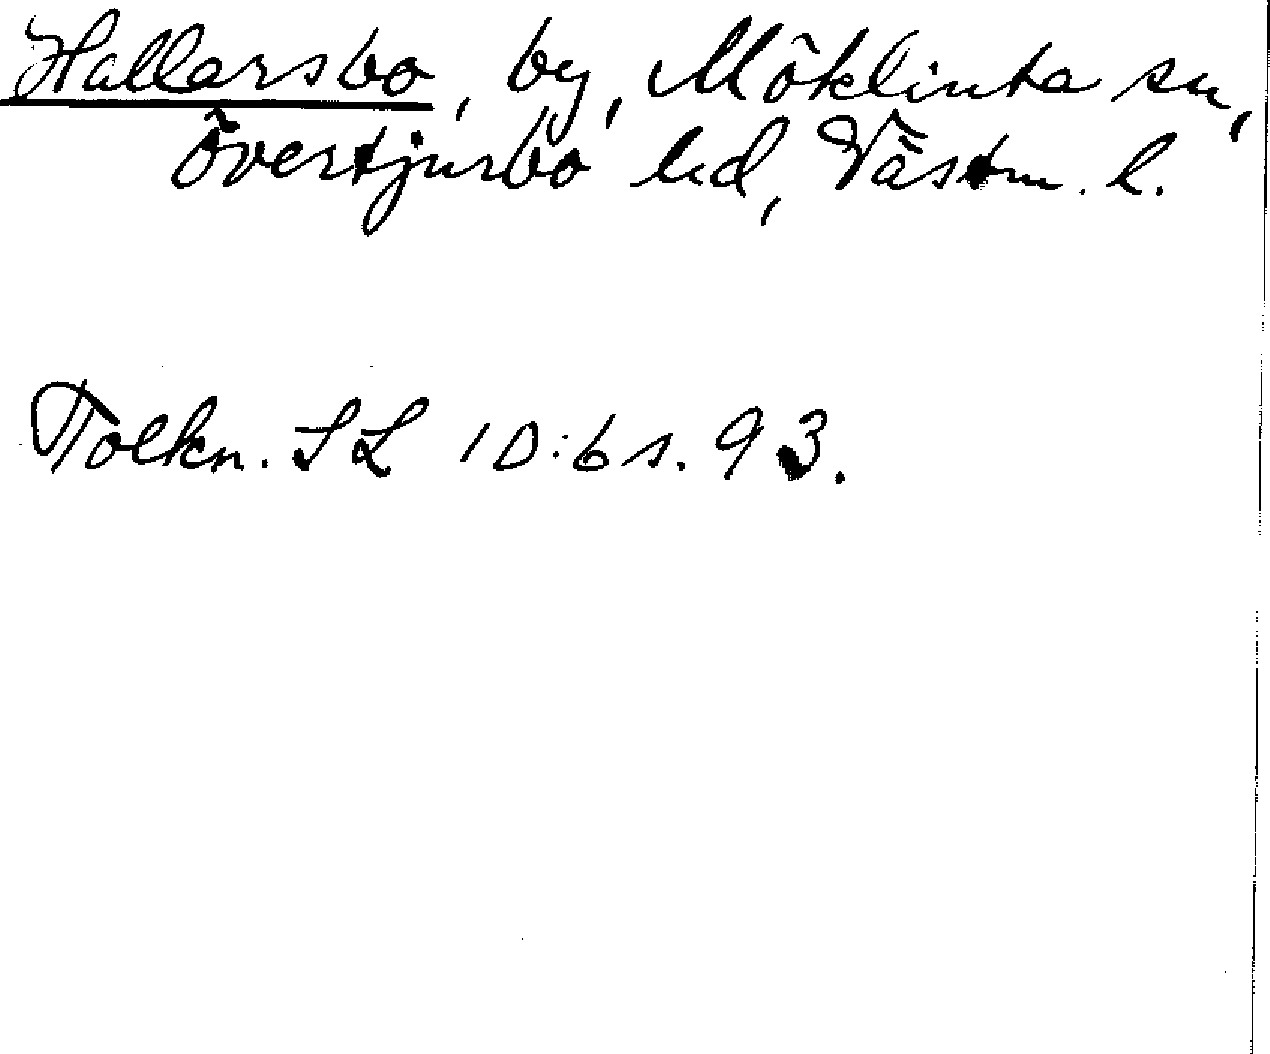 Hallarsbo, by, Möklinta sn,
Övertjurbo hd, Västm. l.
Tolkn. SL 1 D:6 s. 93.